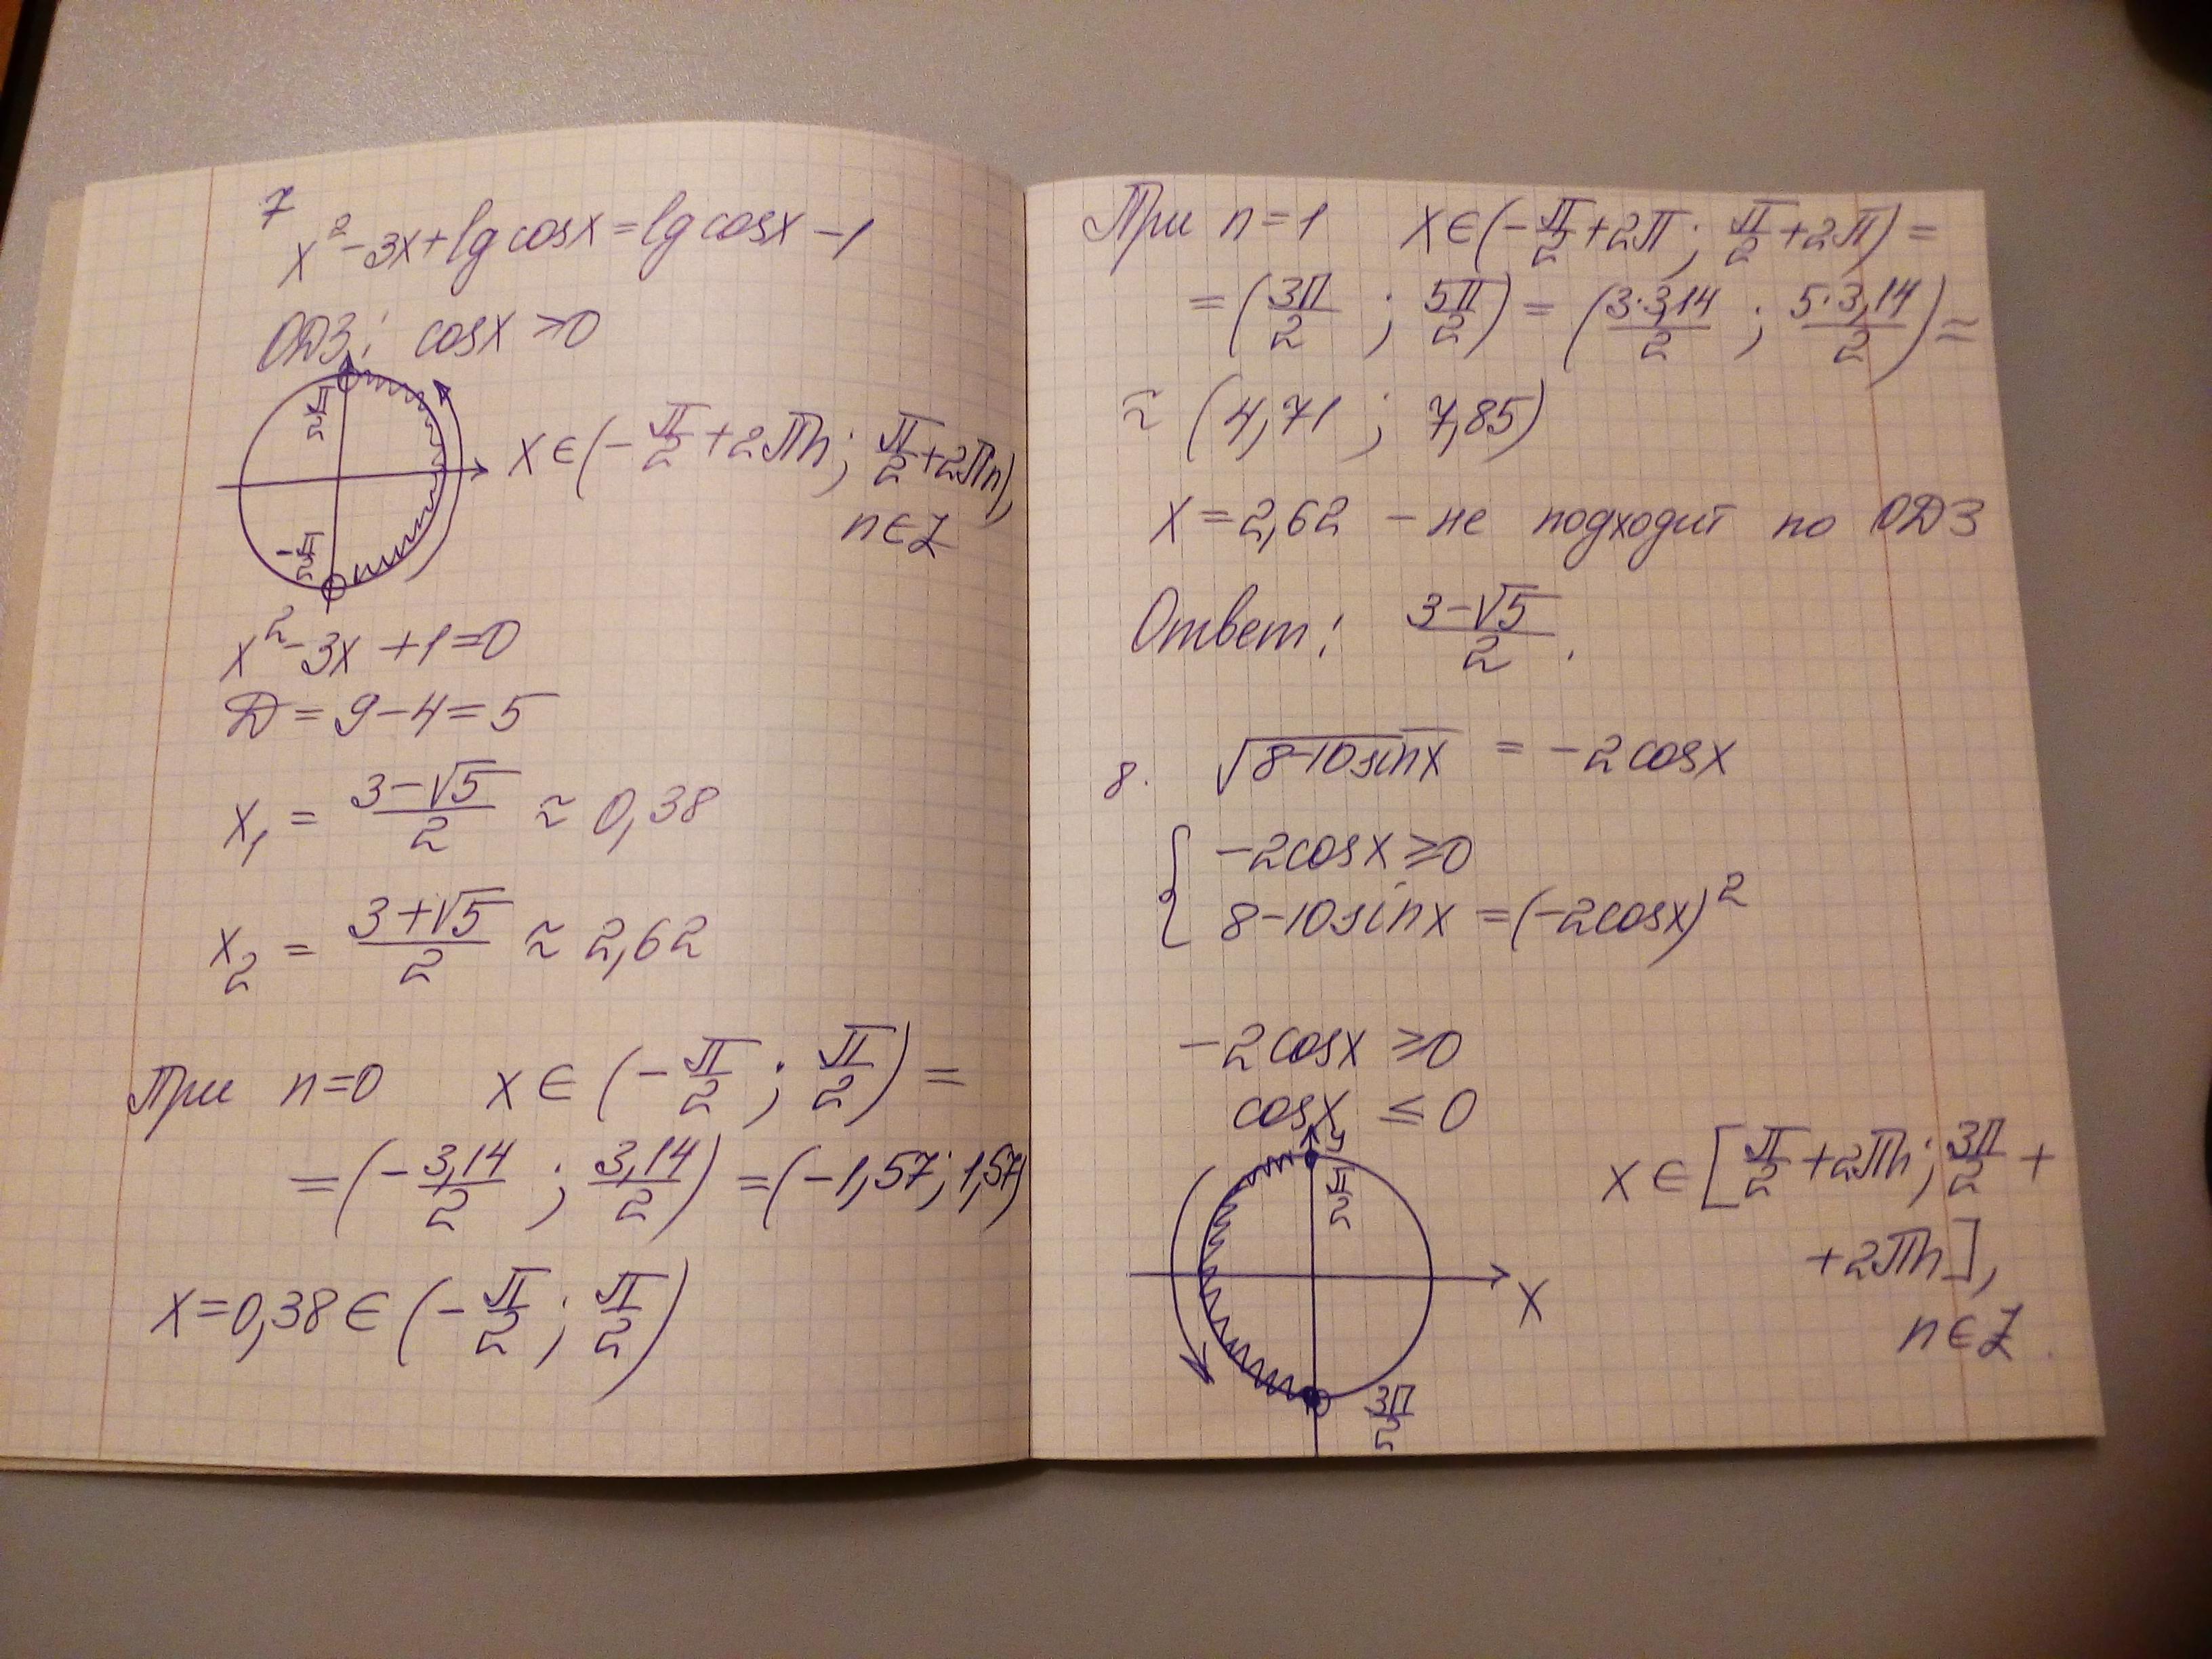 7
x² - 3x + lg cosx = lg cosx - 1
ОДЗ: cosx > 0
π/2
-π/2
x ∈ (-π/2 + 2πn; π/2 + 2πn),
n ∈ Z
x² - 3x + 1 = 0
Д = 9 - 4 = 5
x₁ = (3 - √5)/2 ≈ 0,38
x₂ = (3 + √5)/2 ≈ 2,62
При n = 0 x ∈ (-π/2; π/2) =
= (-3,14/2; 3,14/2) = (-1,57; 1,57)
x = 0,38 ∈ (-π/2; π/2)
При n = 1 x ∈ (-π/2 + 2π; π/2 + 2π) =
= (3π/2; 5π/2) = (3·3,14/2; 5·3,14/2) ≈
≈ (4,71; 7,85)
x = 2,62 - не подходит по ОДЗ
Ответ: (3 - √5)/2.
8. √(8-10sinx) = -2cosx
{ -2cosx ≥ 0
8 - 10sinx = (-2cosx)²
-2cosx ≥ 0
cosx ≤ 0
y
π/2
x
3π/2
x ∈ [π/2 + 2πn; 3π/2 +
+ 2πn],
n ∈ Z.